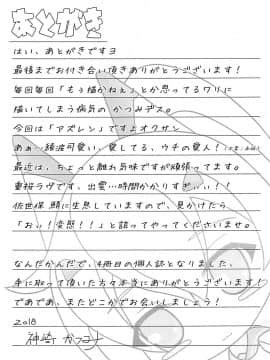 あとがき
はい、あとがきですヨ
最後までお付き合い頂きありがとうございます!
毎回毎回「もう描かねぇ」とか思ってるワリに
描いてしまう病気の かつみデス。
今回は「アズレン」ですよオクサン
あぁ…綾波可愛い、愛してる、ウチの愛人!
最近は、ちょっと離れ気味ですが頑張ってます。
重桜ラヴです、出雲…時間かかりすぎぃ!!
佐世保鯖に生息していますので、見かけたら
「おぃ!変態!!」と詰ってやってくださいませ。
なんだかんだで、4冊目の個人誌となりました、
手に取って頂いた方々本当にありがとうございます!
であであ、またどこかでお会いしましょう!
2018
神崎 かつみ